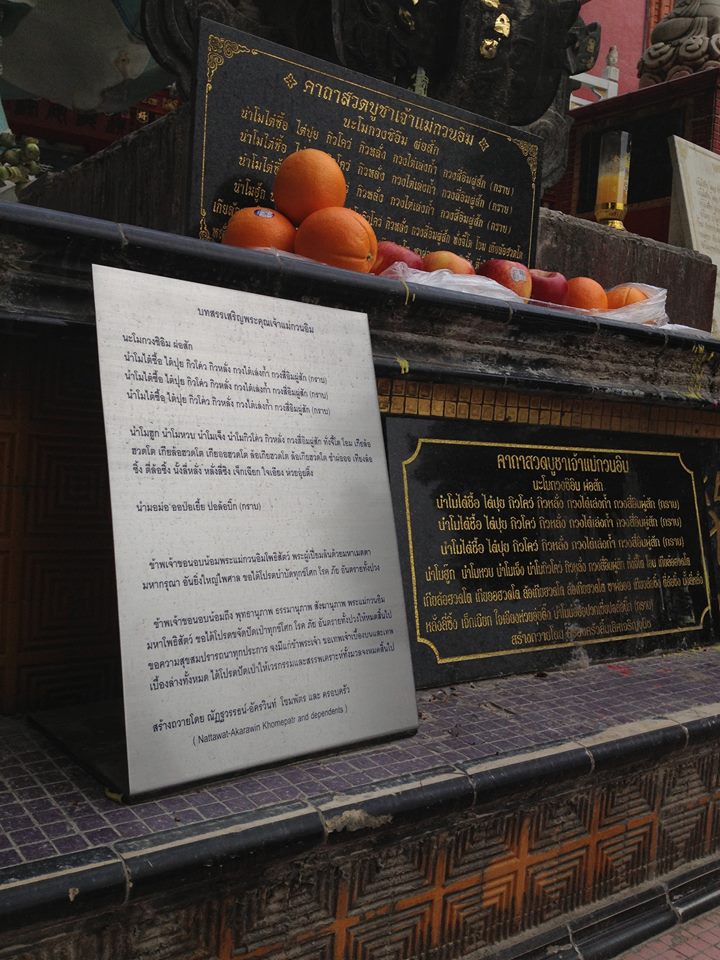 คาถาสวดบูชาเจ้าแม่กวนอิม
นะโมกวงซิอิม ผ่อสัก
นำโมไต๋ซื้อ ไต๋ปุย กิวโคว่ กิวหลั่ง กวงไต๋เล่งก้ำ กวงสี่อิมผู่สัก (กราบ)
นำโมไต๋ซื้อ กิวหลั่ง กวงไต๋เล่งก้ำ กวงสี่อิมผู่สัก (กราบ)
นำโมไต๋ซื้อ กิวหลั่ง กวงไต๋เล่งก้ำ กวงสี่อิมผู่สัก (กราบ)
นำโมฮูก กิวหลั่ง กวงสี่อิมผู่สัก ทั่งจี้โต โอม เกียล้อฮวดโต
บทสรรเสริญพระคุณเจ้าแม่กวนอิม
นะโมกวงซิอิม ผ่อสัก
นำโมไต๋ซื้อ ไต๋ปุย กิวโคว่ กิวหลั่ง กวงไต๋เล่งก้ำ กวงสี่อิมผู่สัก (กราบ)
นำโมไต๋ซื้อ ไต๋ปุย กิวโคว่ กิวหลั่ง กวงไต๋เล่งก้ำ กวงสี่อิมผู่สัก (กราบ)
นำโมไต๋ซื้อ ไต๋ปุย กิวโคว่ กิวหลั่ง กวงไต๋เล่งก้ำ กวงสี่อิมผู่สัก (กราบ)
นำโมฮูก นำโมหวบ นำโมเจ็ง นำโมกิวโคว่ กิวหลั่ง กวงสี่อิมผู่สัก ทั่งจี้โต โอม เกียล้อ
ฮวดโต เกียล้อฮวดโต เกียออฮวดโต ล้อเกียฮวดโต ล้อเกียฮวดโต ซำผ่อออ เทียงล้อ
ซิ้ง ตี่ล้อซิ้ง นั้งลี่หลั่ง หลั่งลี่ซิ้ง เจ็กเฉียก ใจเอียง ห่วยอุ่ยติ๊ง
นำมอม่อ ออป่อเยี้ย ปอล้อบิ๊ก (กราบ)
ข้าพเจ้าขอนอบน้อมพระแม่กวนอิมโพธิสัตว์ พระผู้เปี่ยมล้นด้วยมหาเมตตา
มหากรุณา อันยิ่งใหญ่ไพศาล ขอได้โปรดบำบัดทุกข์โศก โรค ภัย อันตรายทั้งปวง
ข้าพเจ้าขอนอบน้อมถึง พุทธานุภาพ ธรรมานุภาพ สังฆานุภาพ พระแม่กวนอิม
มหาโพธิสัตว์ ขอได้โปรดขจัดปัดเป่าทุกข์โศก โรค ภัย อันตรายทั้งปวงให้หมดสิ้นไป
ขอความสุขสมปรารถนาทุกประการ จงมีแก่ข้าพระเจ้า ขอเทพเจ้าเบื้องบนและเทพ
เบื้องล่างทั้งหมด ได้โปรดปัดเป่าให้เวรกรรมและสรรพเคราะห์ทั้งมวลจงหมดสิ้นไป
สร้างถวายโดย ณัฏฐวรรธน์-อัครวินท์ โขมพัตร และ ครอบครัว
( Nattawat-Akarawin Khomepatr and dependents )
คาถาสวดบูชาเจ้าแม่กวนอิม
นะโมกวงซิอิม ผ่อสัก
นำโมไต๋ซื้อ ไต๋ปุย กิวโคว่ กิวหลั่ง กวงไต๋เล่งก้ำ กวงสี่อิมผู่สัก (กราบ)
นำโมไต๋ซื้อ ไต๋ปุย กิวโคว่ กิวหลั่ง กวงไต๋เล่งก้ำ กวงสี่อิมผู่สัก (กราบ)
นำโมไต๋ซื้อ ไต๋ปุย กิวโคว่ กิวหลั่ง กวงไต๋เล่งก้ำ กวงสี่อิมผู่สัก (กราบ)
นำโมฮูก นำโมหวบ นำโมเจ็ง นำโมกิวโคว่ กิวหลั่ง กวงสี่อิมผู่สัก ทั่งจี้โต โอม เกียล้อฮวดโต
เกียล้อฮวดโต เกียออฮวดโต ล้อเกียฮวดโต ล้อเกียฮวดโต ซาผ่อออ เทียงล้อซิ้ง ตี่ล้อซิ้ง นั้งลี่หลั่ง
หลั่งลี่ซิ้ง เจ็กเฉียก (กราบ)
สร้างถวายโดย